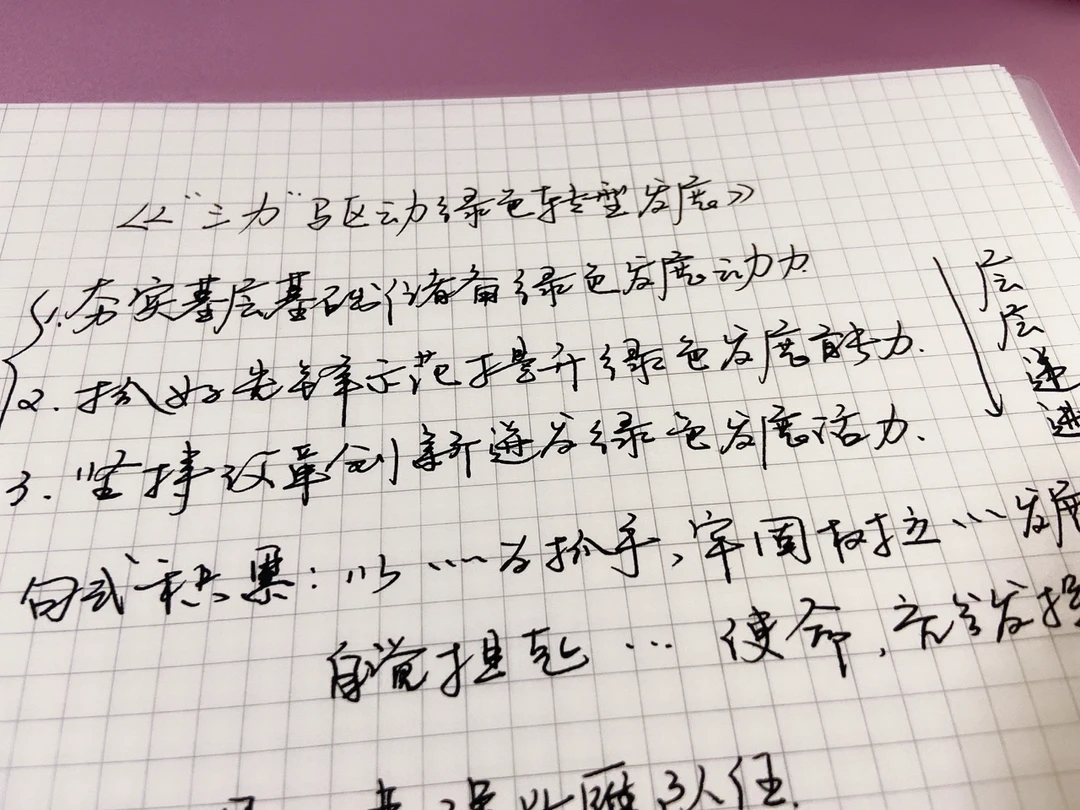 《“三力”驱动绿色转型发展》
1.夯实基层基础储备绿色发展动力
2.抓好先锋示范提升绿色发展能力.
3.坚持改革创新迸发绿色发展活力.
层层递进
句式积累：以……为抓手，牢固树立…发展
自觉担起…使命，充分发挥